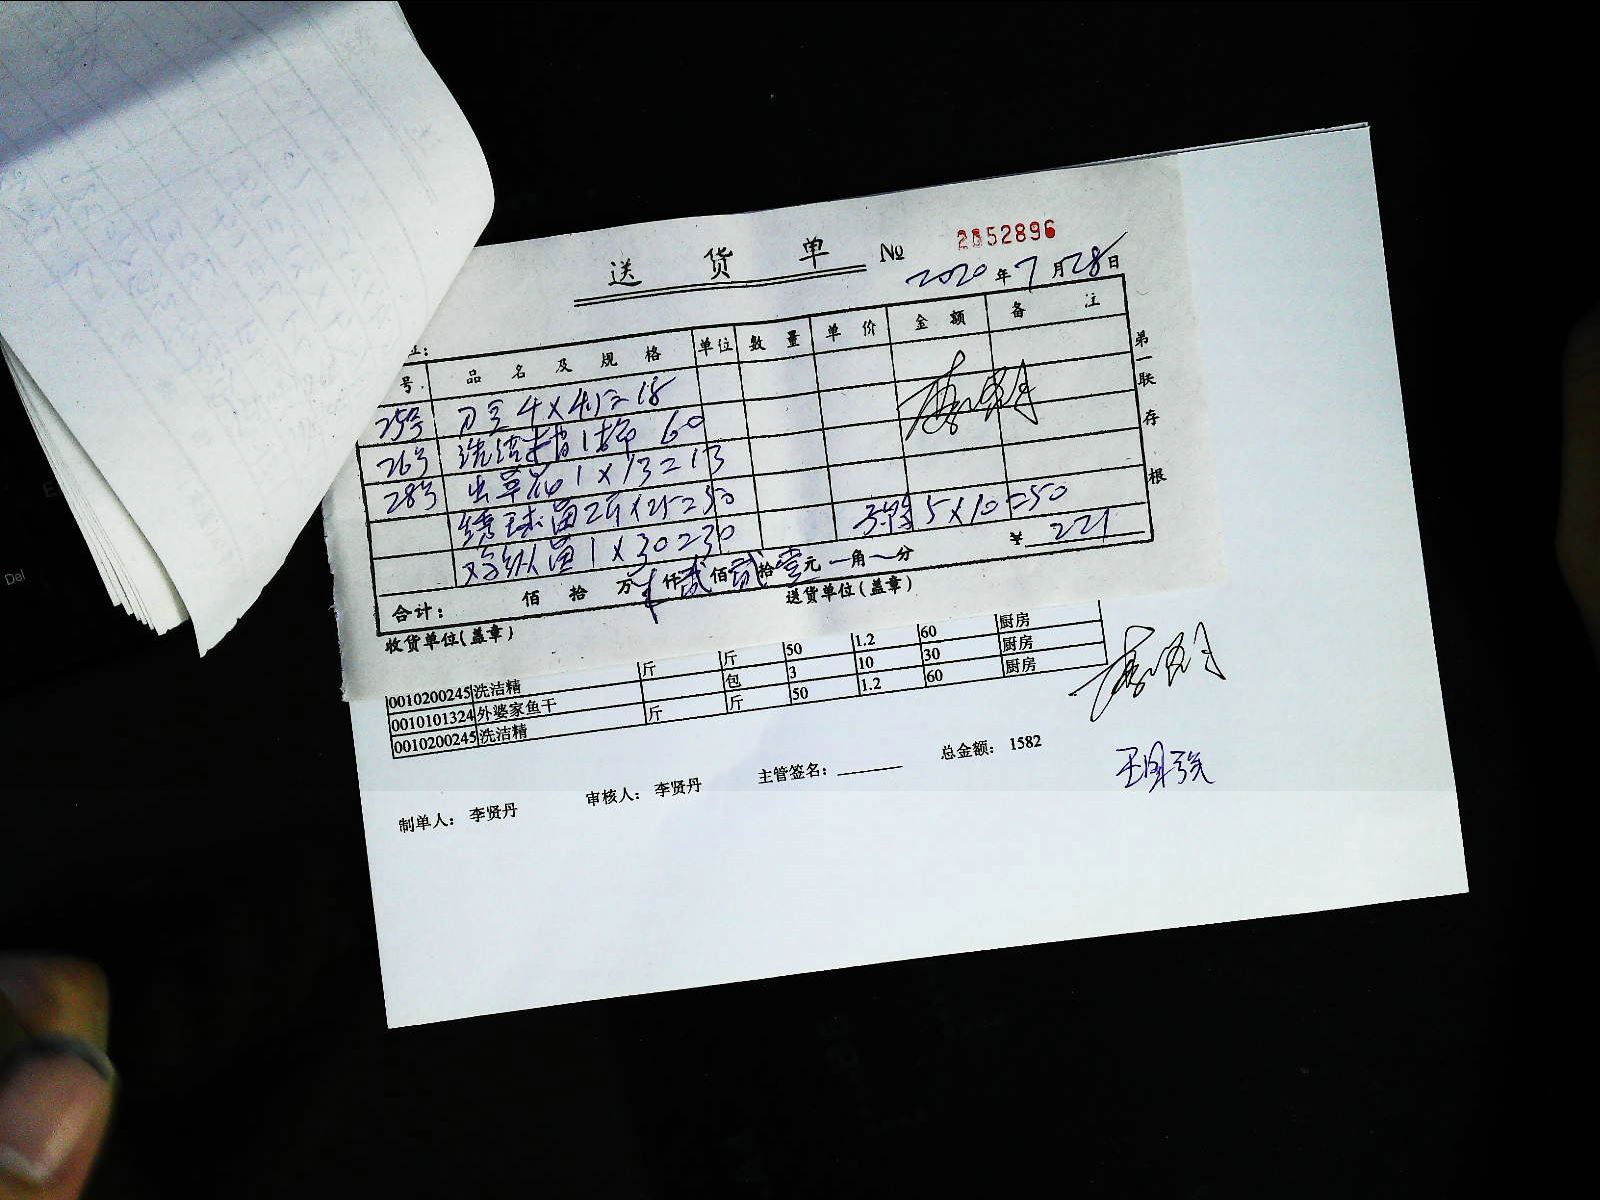 送 货 单 № 2052896
2020年7月28日
号 品名及规格 单位 数量 单价 金额 备注
25号 4×4.5=18
26号 洗洁精1桶 60
28号 虫草花1×13=13
绣球菌2斤×25=50
鸡纵菌1×30=30 5×10=50
合计: 佰 拾 万 仟贰佰贰拾壹元一角一分 ¥ 221
收货单位(盖章) 送货单位(盖章)
第一联 存根
0010200245 洗洁精 斤 斤 50 1.2 60 厨房
0010101324 外婆家鱼干 包 3 10 30 厨房
0010200245 洗洁精 斤 斤 50 1.2 60 厨房
制单人: 李贤丹 审核人: 李贤丹 主管签名: 总金额: 1582
Del